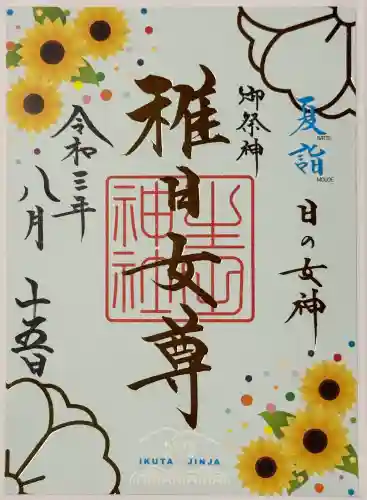 夏詣
NATSU
MOUDE
日の女神
御祭神
稚日女尊
生田
神社
令和三年
八月
十五日
IKUTA JINJA